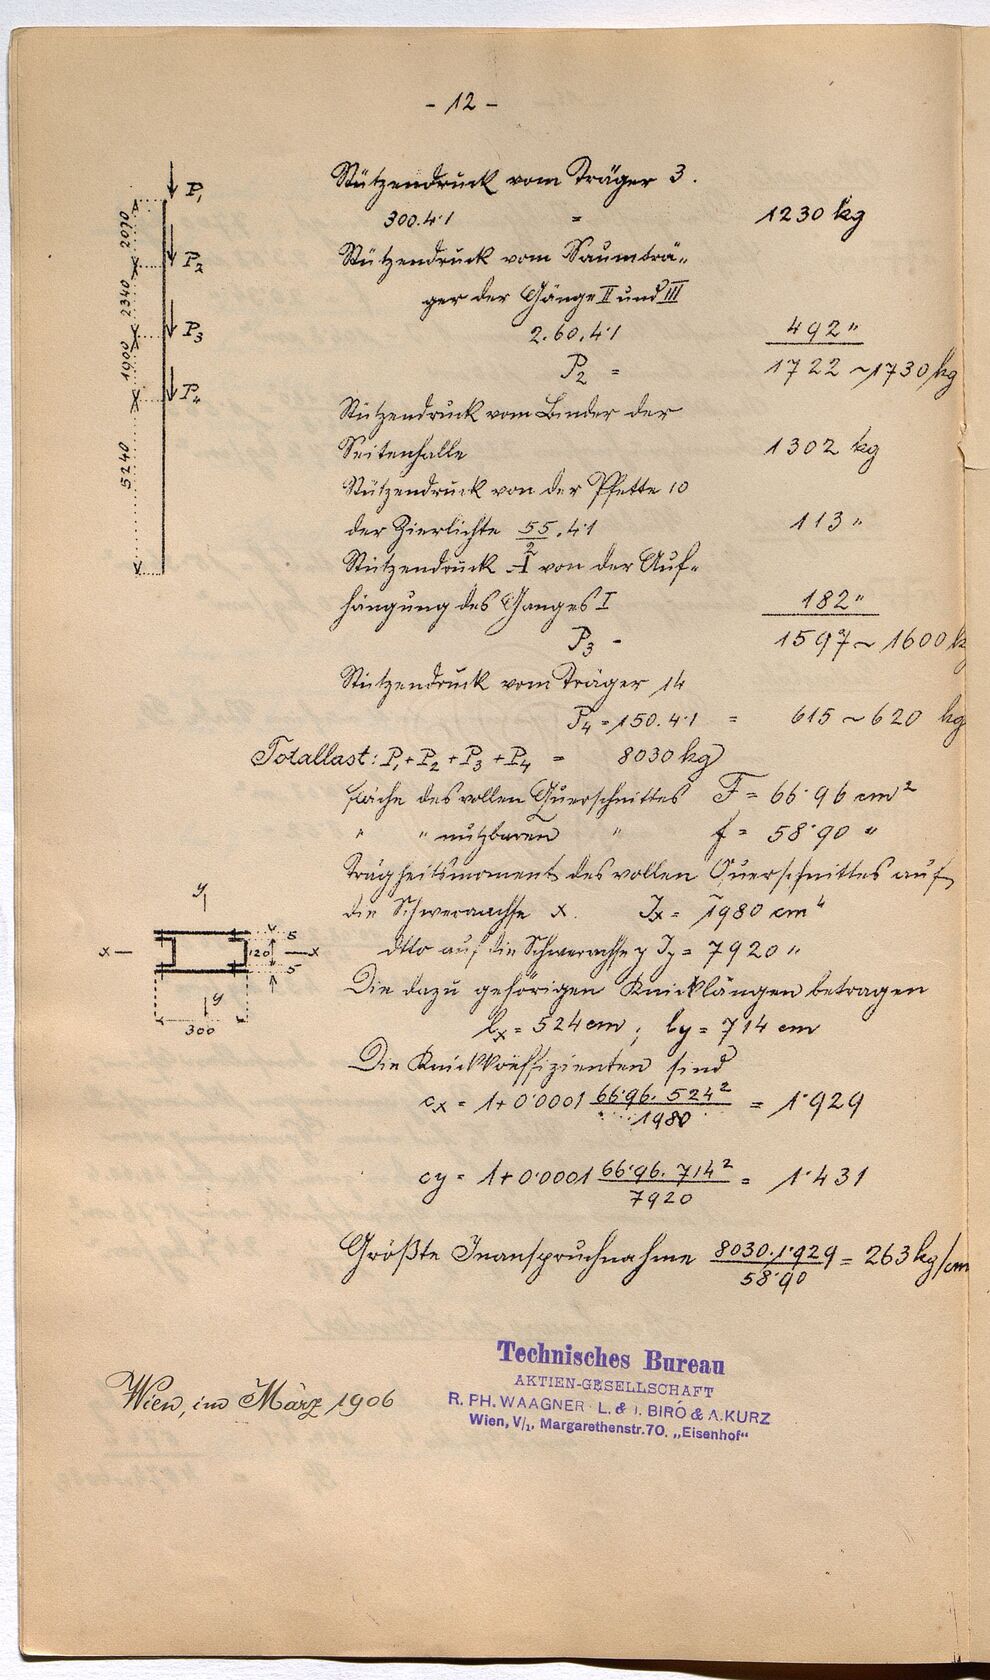 - 12 -
Stützendruck vom Träger 3.
300.4·1 = 1230 kg
Stützendruck vom Saumträ-
ger der Gänge II und III
2.60.4·1 492 "
P2 = 1722 ~ 1730 kg
Stützendruck vom Binder der
Seitenhalle 1302 kg
Stützendruck von der Pfette 10
der Zierlichte 55/2 . 4·1 113 "
Stützendruck A von der Auf-
hängung des Ganges I 182 "
P3 = 1597 ~ 1600 k
Stützendruck vom Träger 14
P4 = 150.4·1 = 615 ~ 620 kg
Totallast: P1 + P2 + P3 + P4 = 8030 kg
Fläche des vollen Querschnittes F = 66·96 cm²
" " nutzbaren " f = 58·90 "
Trägheitsmoment des vollen Querschnittes auf
die Schwerachse x. Jx = 1980 cm⁴
dtto auf die Schwerachse y Jy = 7920 "
Die dazu gehörigen Knicklängen betragen
lx = 524 cm; ly = 714 cm
Die Knickkoëffizienten sind
cx = 1 + 0·0001 66·96. 524² / 1980 = 1·929
cy = 1 + 0·0001 66·96. 714² / 7920 = 1·431
Größte Inanspruchnahme 8030.1·929 / 58·90 = 263 kg/cm
Wien, im März 1906
Technisches Bureau
AKTIEN-GESELLSCHAFT
R. PH. WAAGNER · L. & J. BIRÓ & A. KURZ
Wien, V/1, Margarethenstr. 70. „Eisenhof“
P1
2070
P2
2340
P3
1900
P4
5240
y
5
x x
120
5
y
300